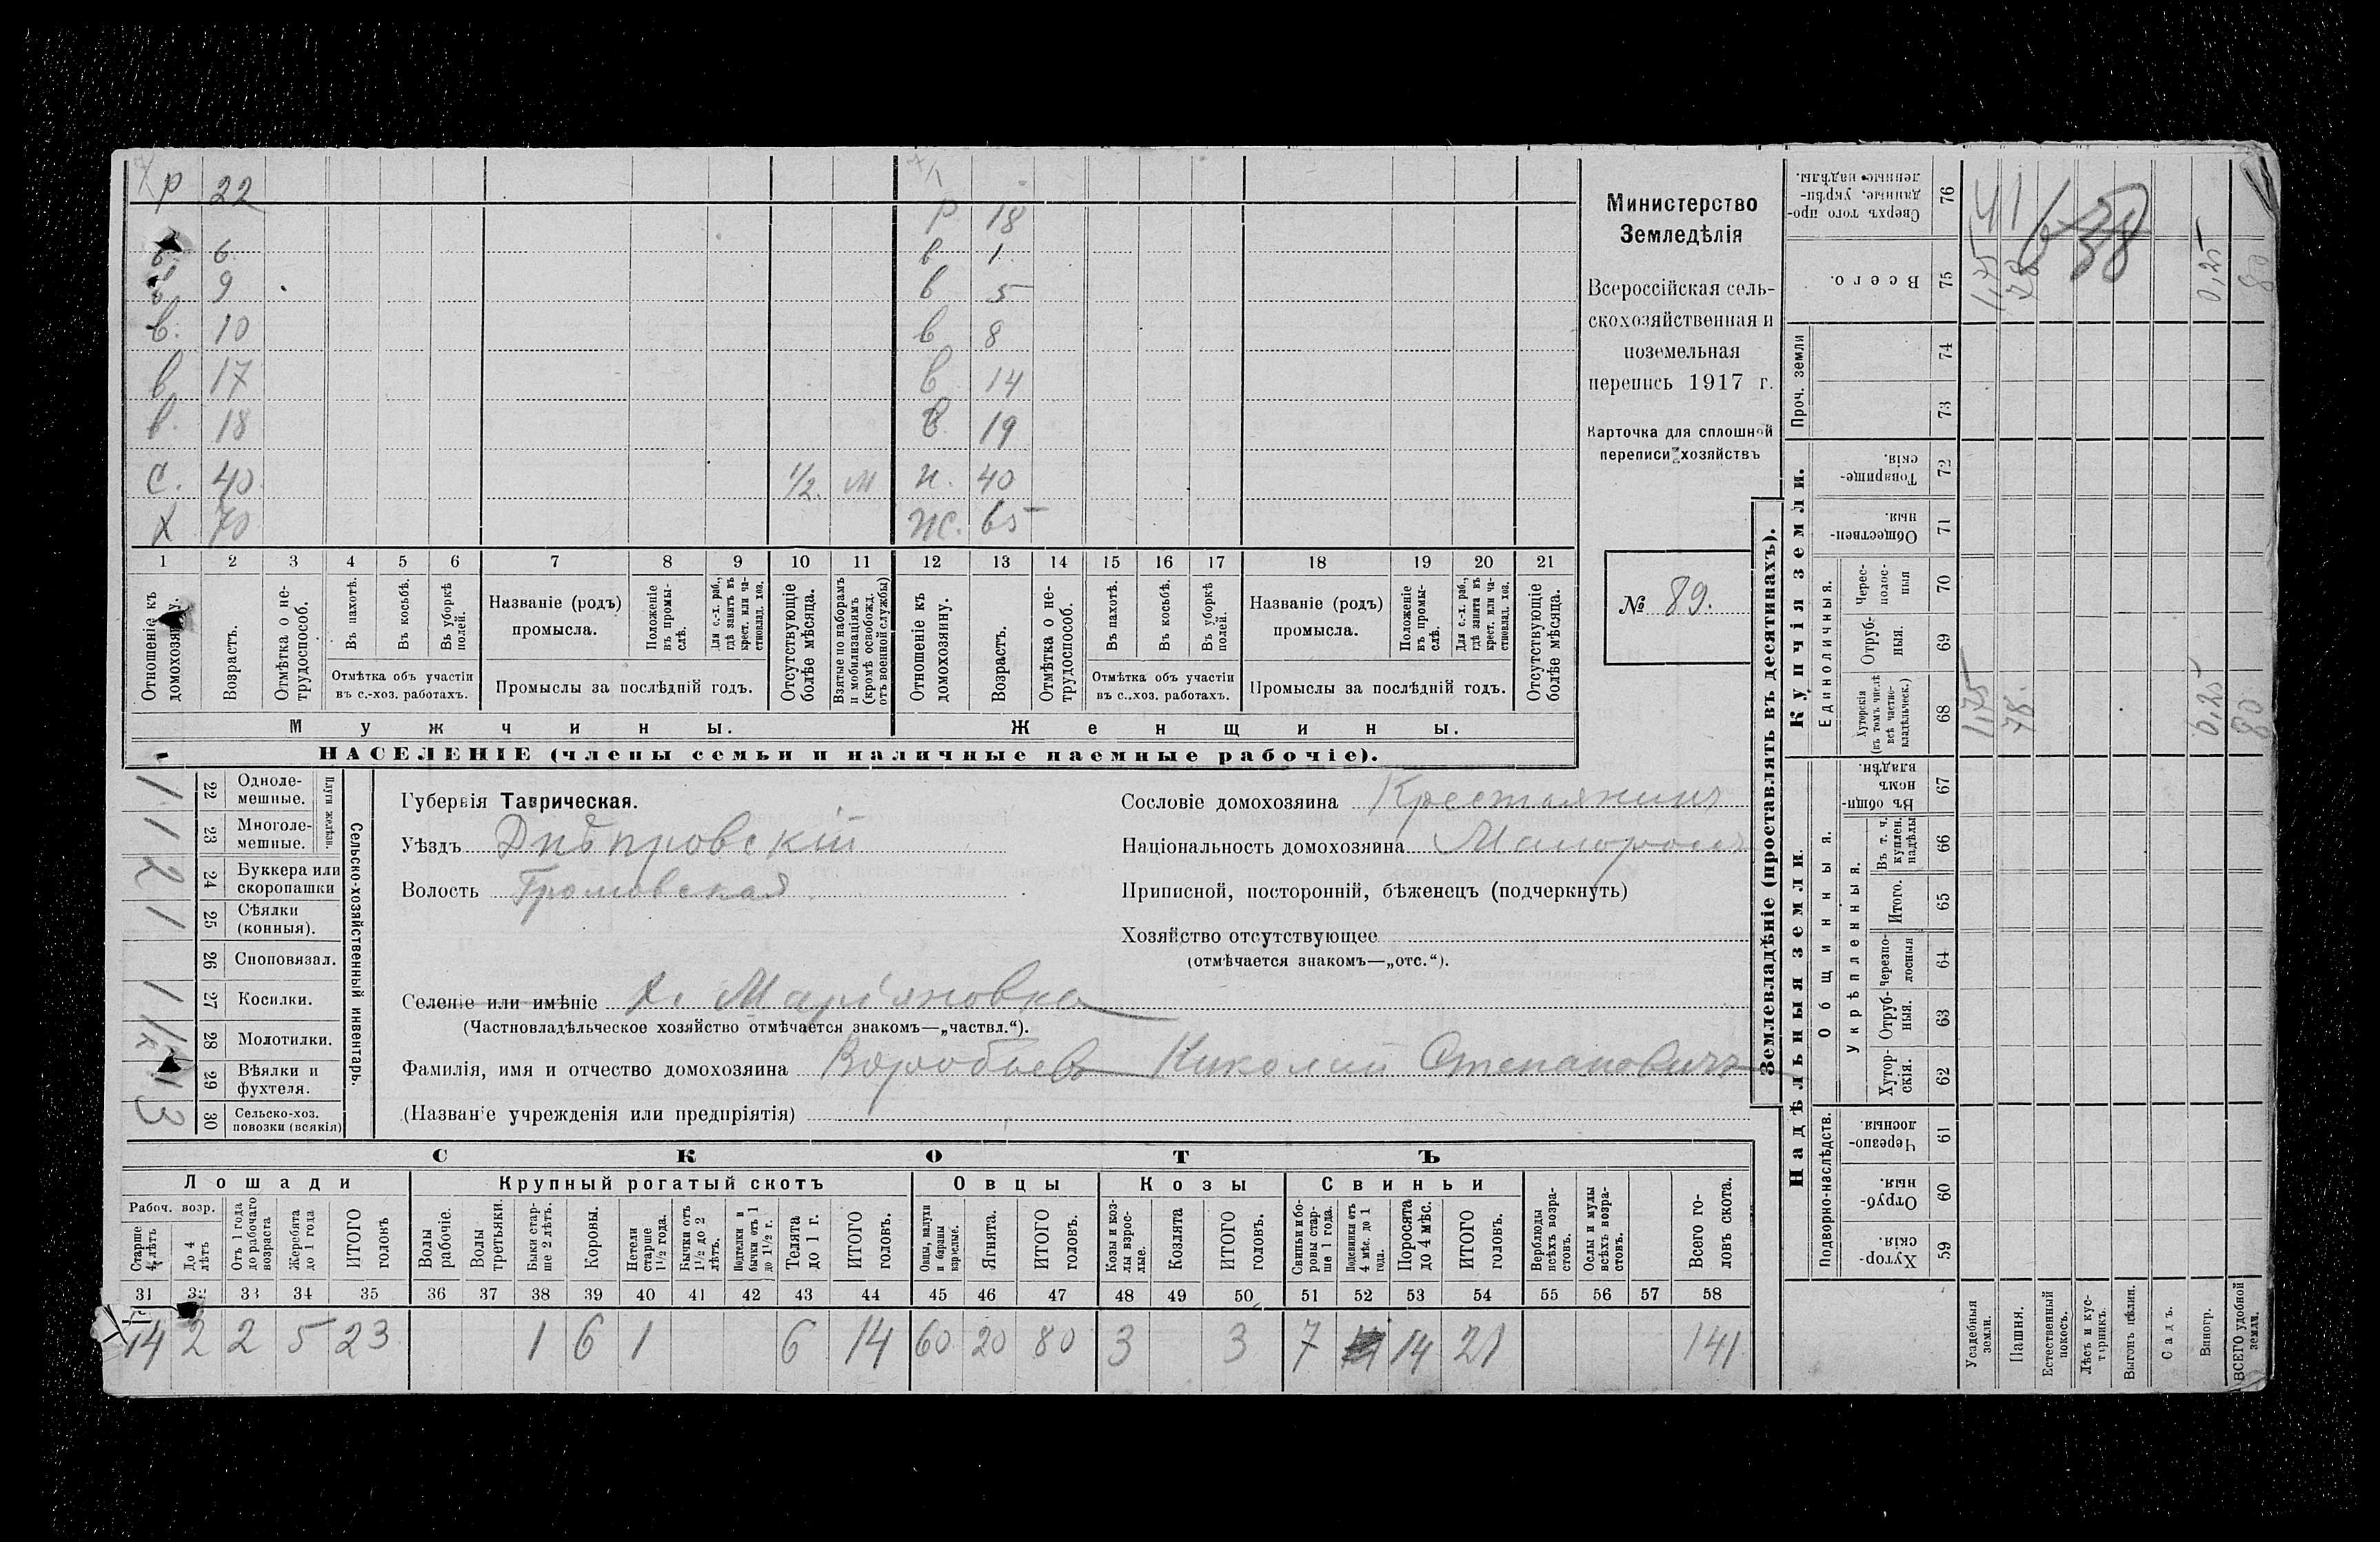 Р 22 Р 18
в. 6 в 1
в 9 в 5
в. 10 в 8
в 17 в 14
в. 18 в. 19
С. 40 1/2. М Н. 40
Х 70 Ж. 65
1 2 3 4 5 6 7 8 9 10 11 12 13 14 15 16 17 18 19 20 21
Отношеніе къ домохозяину.
Возрастъ.
Отмѣтка о не-
трудоспособ.
Въ пахотѣ.
Въ косьбѣ.
Въ уборкѣ
полей.
Отмѣтка объ участіи
въ с.-хоз. работахъ.
Названіе (родъ)
промысла.
Положеніе
въ промы-
слѣ.
Для с.-х. раб.,
гдѣ занятъ въ
крест. или ча-
стновлад. хоз.
Промыслы за послѣдній годъ.
Отсутствующіе
болѣе мѣсяца.
Взятые по наборамъ
и мобилизаціямъ
(кромѣ освобожд.
отъ военной службы)
Отношеніе къ
домохозяину.
Возрастъ.
Отмѣтка о не-
трудоспособ.
Въ пахотѣ.
Въ косьбѣ.
Въ уборкѣ
полей.
Отмѣтка объ участіи
въ с.-хоз. работахъ.
Названіе (родъ)
промысла.
Положеніе
въ промы-
слѣ.
Для с.-х. раб.,
гдѣ занята въ
крест. или ча-
стновлад. хоз.
Промыслы за послѣдній годъ.
Отсутствующіе
болѣе мѣсяца.
Мужчины. Женщины.
НАСЕЛЕНІЕ (члены семьи и наличные наемные рабочіе).
Министерство
Земледѣлія
Всероссійская сель-
скохозяйственная и
поземельная
перепись 1917 г.
Карточка для сплошной
переписи хозяйствъ
№ 89.
Сельско-хозяйственный инвентарь.
Плуги желѣзн.
1 22 Одноле-
мешные.
1 23 Многоле-
мешные.
2 24 Буккера или
скоропашки
1 25 Сѣялки
(конныя).
26 Сноповязал.
1 27 Косилки.
28 Молотилки.
1 29 Вѣялки и
фухтеля.
3 30 Сельско-хоз.
повозки (всякія)
Губернія Таврическая.
Уѣздъ Днѣпровскій
Волость Громовская
Селеніе или имѣніе х. Маріяновка
(Частновладѣльческое хозяйство отмѣчается знакомъ—„частвл.“).
Фамилія, имя и отчество домохозяина Воробьевъ Николай Степановичъ
(Названіе учрежденія или предпріятія)
Сословіе домохозяина Крестьянинъ
Національность домохозяина Малороссъ
Приписной, посторонній, бѣженецъ (подчеркнуть)
Хозяйство отсутствующее
(отмѣчается знакомъ—„отс.“).
СКОТЪ
Лошади Крупный рогатый скотъ Овцы Козы Свиньи
Рабоч. возр.
Старше
4 лѣтъ
До 4
лѣтъ
Отъ 1 года
до рабочаго
возраста
Жеребята
до 1 года
ИТОГО
головъ
Волы
рабочіе.
Волы
третьяки.
Быки стар-
ше 2 лѣтъ.
Коровы.
Нетели
старше
1 1/2 года.
Бычки отъ
1 1/2 до 2
лѣтъ.
Подтелки и
бычки отъ 1
до 1 1/2 г.
Телята
до 1 г.
ИТОГО
головъ.
Овцы, валухи
и бараны
взрослые.
Ягнята.
ИТОГО
головъ.
Козы и коз-
лы взрос-
лые.
Козлята
ИТОГО
головъ.
Свиньи и бо-
ровы стар-
ше 1 года.
Подсвинки отъ
4 мѣс. до 1
года.
Поросята
до 4 мѣс.
ИТОГО
головъ.
Верблюды
всѣхъ возра-
стовъ.
Ослы и мулы
всѣхъ возра-
стовъ.
Всего го-
ловъ скота.
31 32 33 34 35 36 37 38 39 40 41 42 43 44 45 46 47 48 49 50 51 52 53 54 55 56 57 58
14 2 2 5 23 1 6 1 6 14 60 20 80 3 3 7 14 21 141
Землевладѣніе (проставлять въ десятинахъ).
Надѣльныя земли.
Купчія земли.
Проч. земли
Подворно-наслѣдств.
Общинныя.
Укрѣпленныя.
Единоличныя.
Хутор-
скія. 59
Отруб-
ныя. 60
Черезпо-
лосныя. 61
Хутор-
скія. 62
Отруб-
ныя. 63
Черезпо-
лосныя 64
Итого. 65
Въ т. ч.
куплен.
надѣлы 66
Въ общи-
номъ
владѣн. 67
Хуторскія
(въ томъ числѣ
всѣ частно-
владѣльческ.) 68
Отруб-
ныя. 69
Черес-
полос-
ныя 70
Обществен-
ныя. 71
Товарище-
скія. 72
73
74
Всего. 75
Сверхъ того про-
данные, укрѣп-
ленные надѣлы. 76
Усадебныя
земли. 1,75 1,75
Пашня. 78. 78 41
Естественный
покосъ.
Лѣсъ и кус-
тарникъ.
Выгонъ цѣлин.
Садъ.
Виногр. 0,25 0,25
ВСЕГО удобной
земли. 80. 80